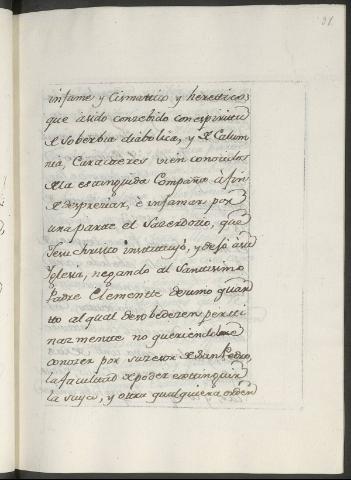 31
infame y Cismatico y hereticos
que à sido consebido con espiritu
de Soberbia diabolica, y de Calum
nia, Caracteres vien conosidos
de la estinguida Compañia à fin
de despreciar, e infamar por
una parte el Sacerdosio, que
Jesuchristo instituyó, y desa à su
Yglesia, negando al Santisimo
Padre Clemente desimo quar
to al qual desobedesen pertti
nazmente no queriendo re
conozer por susesor de San Pedro,
la facultad de poder extinguir
la suya, y otra qualquiera orden